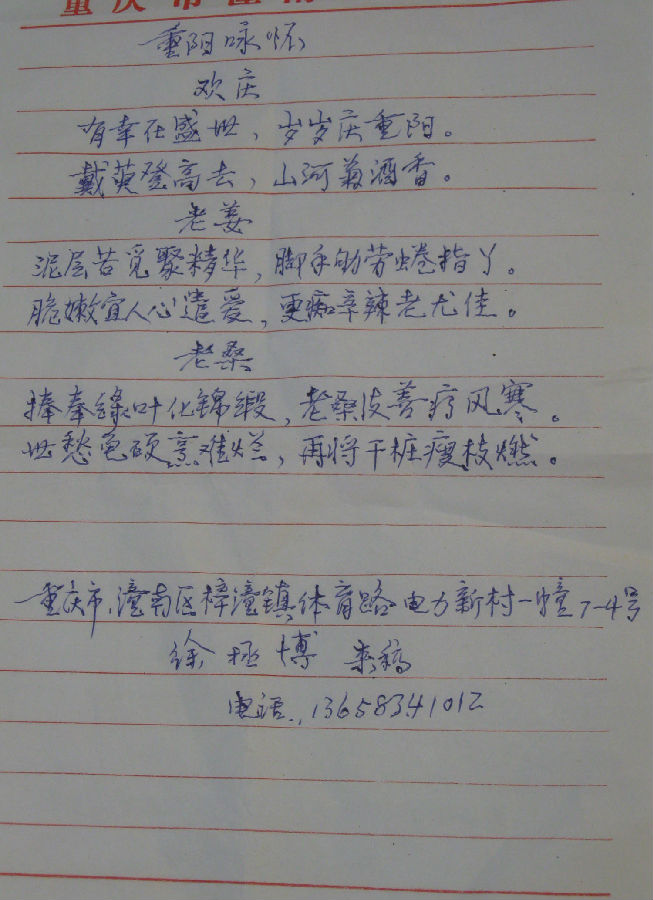 重庆市潼南
重阳咏怀
欢庆
有幸在盛世，岁岁庆重阳。
戴萸登高去，山河菊酒香。
老姜
泥层苦觅聚精华，脚手劬劳蜷指丫。
脆嫩宜人心遣爱，更痴辛辣老尤佳。
老桑
捧奉绿叶化锦缎，老桑皮善疗风寒。
世愁黾硬烹难烂，再将干桩瘦枝燃。
重庆市，潼南区梓潼镇体育路电力新村一幢7-4号
徐极博 来稿
电话：13658341012